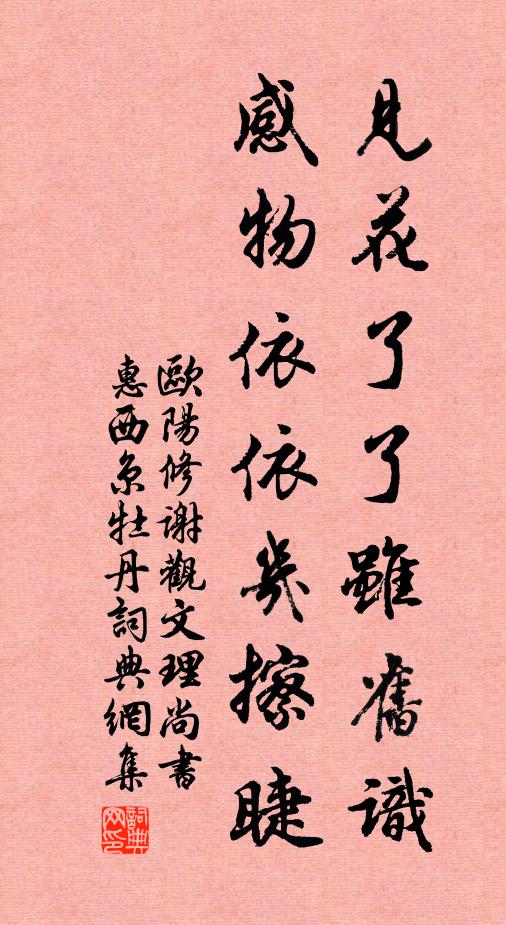 見花了了雖舊識
感物依依幾擦睫
歐陽修謝觀文理尚書
惠西京牡丹詞典網集
詞典
网印